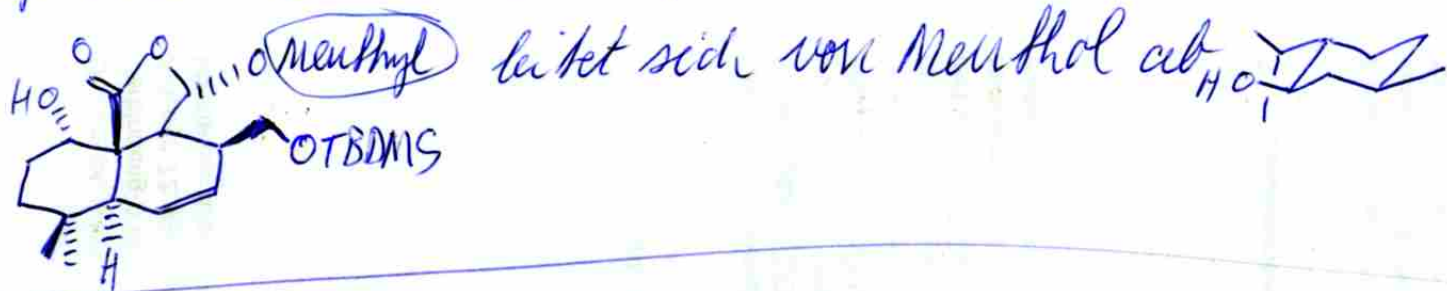 O O O Menthyl leitet sich von Menthol ab HO
HO
OTBDMS
H